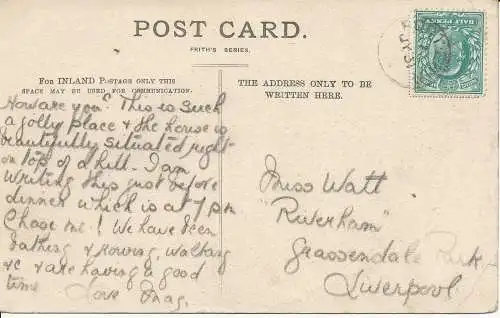 POST CARD.
FRITH'S SERIES.
FOR INLAND POSTAGE ONLY THIS
SPACE MAY BE USED FOR COMMUNICATION.
THE ADDRESS ONLY TO BE
WRITTEN HERE.
HALF PENNY
How are you? This is such
a jolly place & the house is
beautifully situated right
on top of a hill. I am
writing this just before
dinner which is at 7 pm
Chase me! We have been
bathing & rowing, walking
&c & are having a good
time Love Mag.
Miss Watt
"Riverham"
Grassendale Park
Liverpool